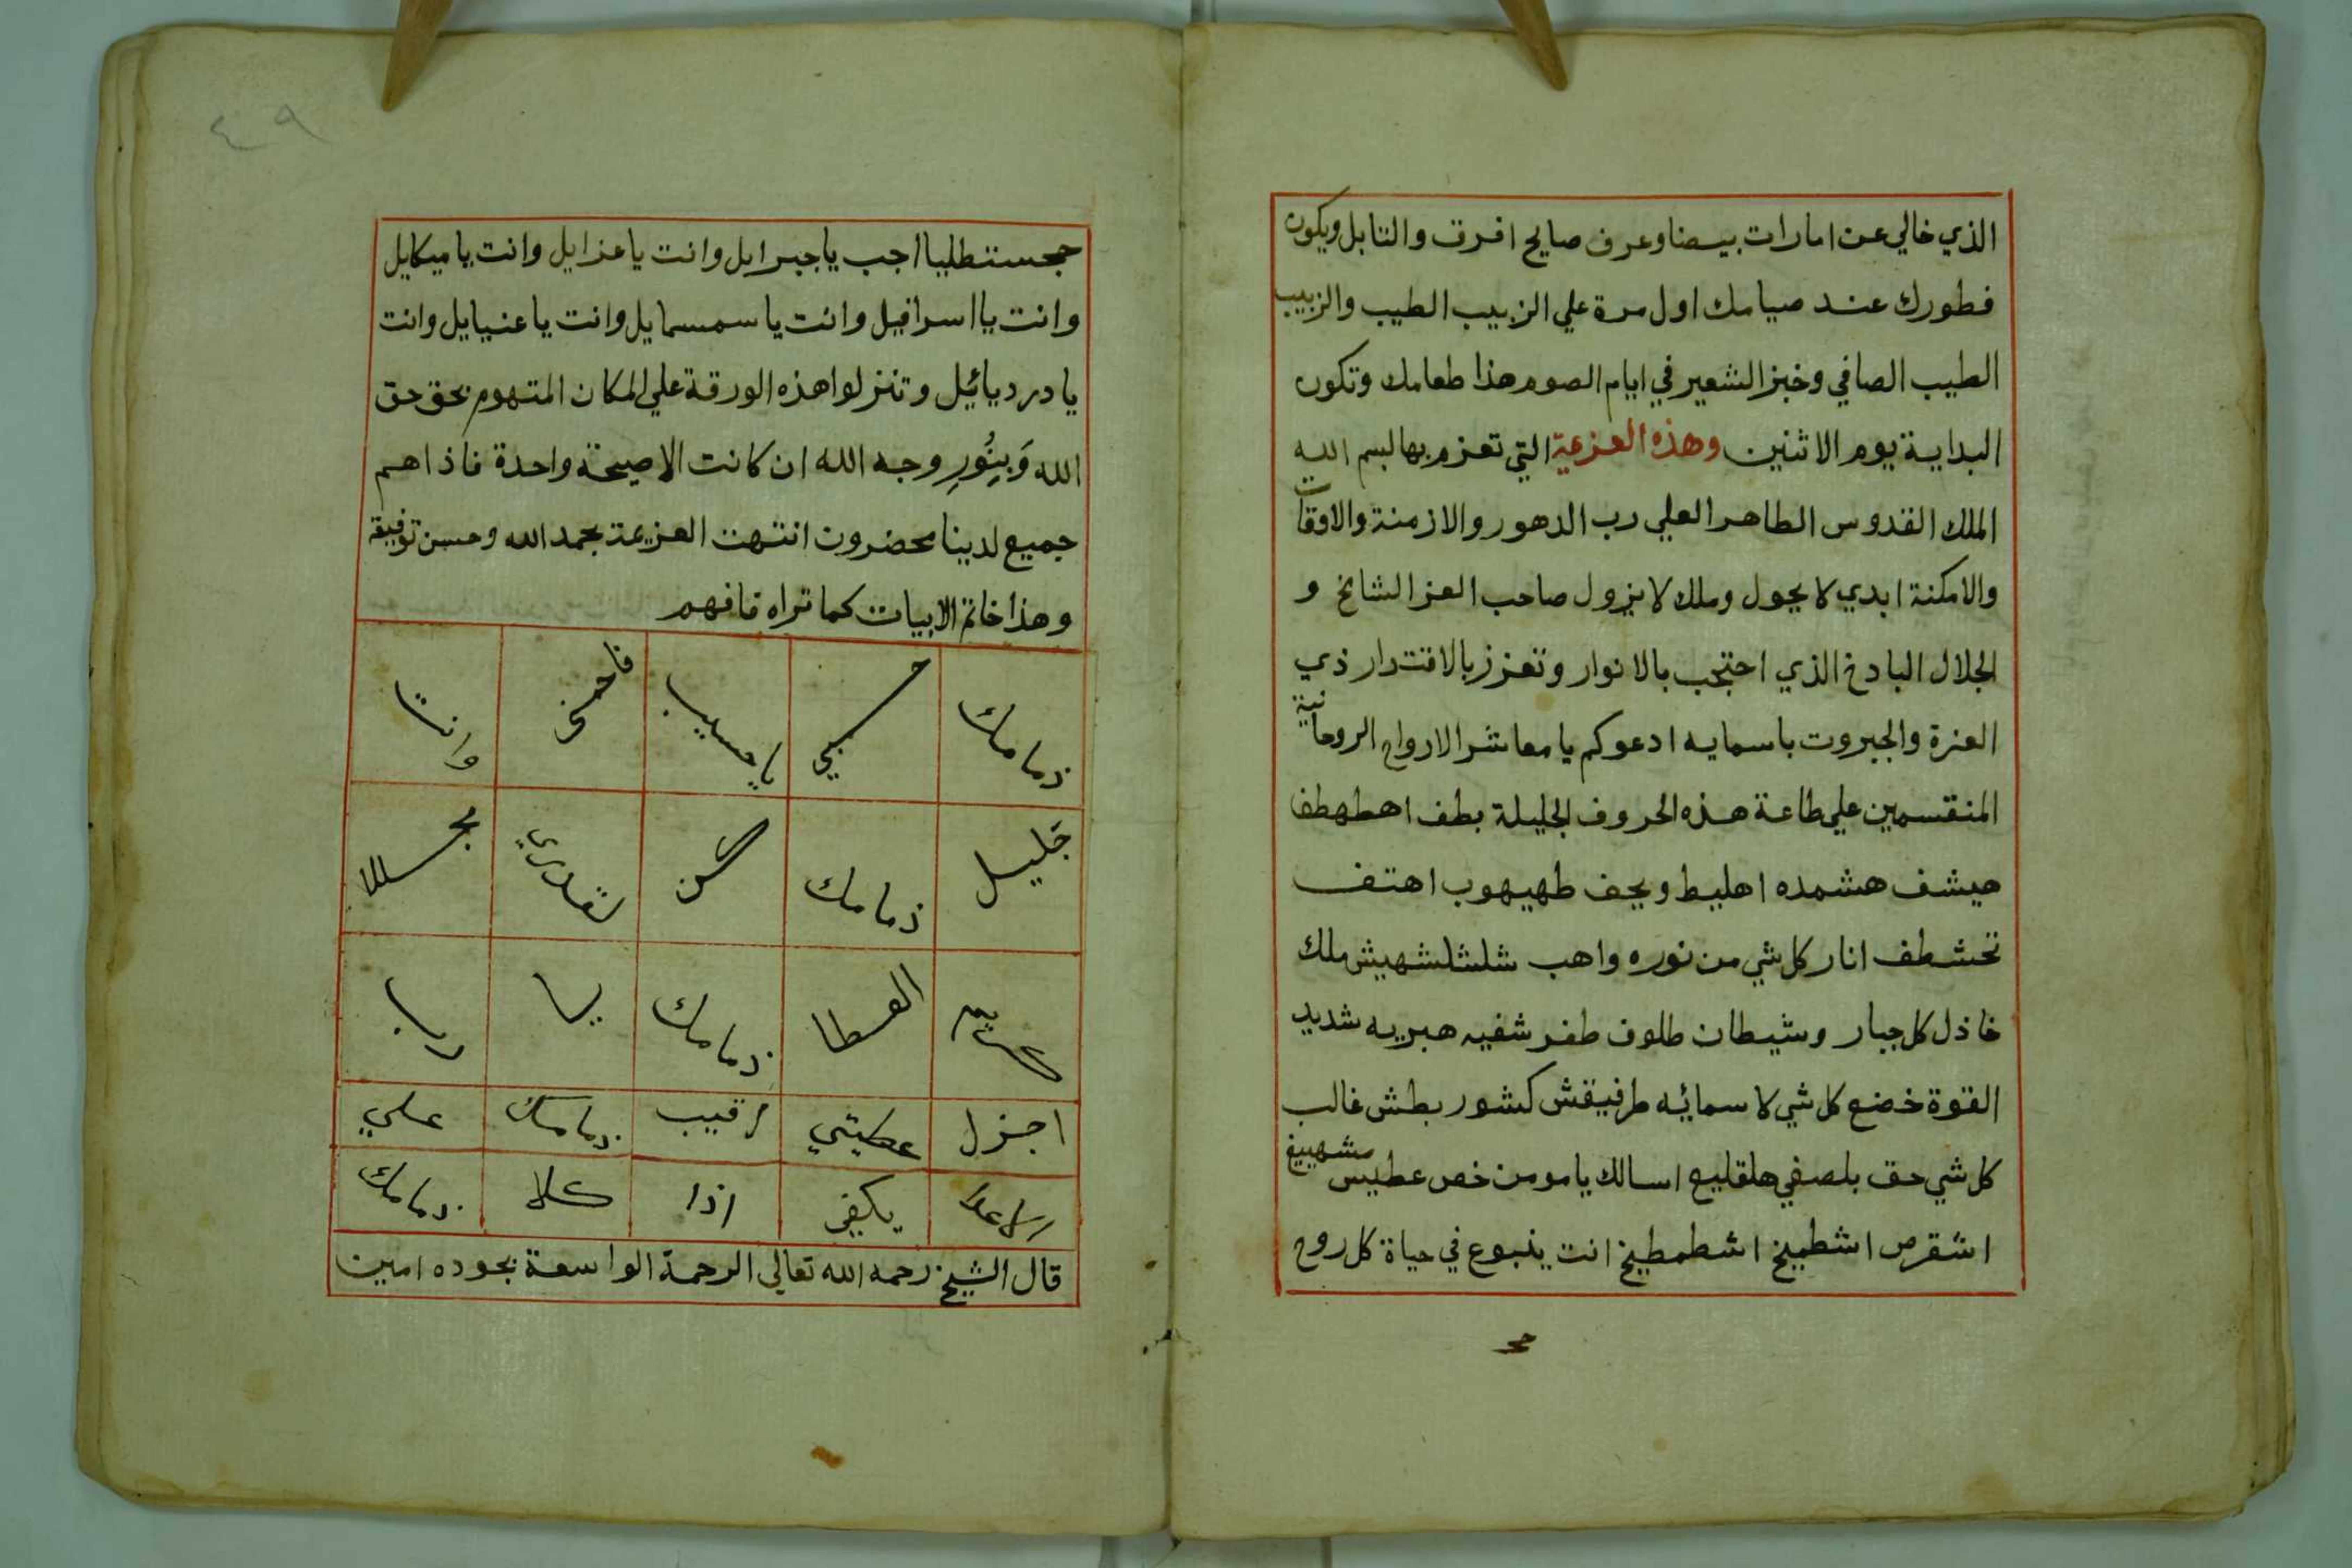 الذي خالي عن امارات بيضا وعرف صايح افرق والتابل ويكون
فطورك عند صيامك اول مرة علي الزبيب الطيب والزبيب
الطيب الصافي وخبز الشعير في ايام الصوم هذا طعامك وتكون
البداية يوم الاثنين وهذه العزعية التي تعزم بها بسم الله
الملك القدوس الطاهر العلي رب الدهور والازمنة والاوقات
والامكنة ابدي لا يحول وملك لا يزول صاحب العز الشامخ و
الجلال البادخ الذي احتجب بالانوار وتعزز بالاقتدار ذي
العزة والجبروت باسمايه ادعوكم يا معاشر الارواح الروحانية
المنقسمين علي طاعة هذه الحروف الجليلة بطف اهطهطف
هيشف هشمده اهليط ويحف طهيهوب اهتف
تحشطف انار كل شي من نوره واهب شلشلشهيش ملك
خاذل كل جبار وشيطان طلوف طفر شفيه هبريه شديد
القوة خضع كل شي لاسمائه طرفيقش كشور بطش غالب
كل شي حق بلصفي هلقليع اسالك يا مومن خص عطيس مشهييغ
اشقرص اشطييخ اشطمطيخ انت ينبوع في حياة كل روح
٤٩
اجب يا جبرايل وانت يا عزايل وانت يا ميكايل
وانت يا اسرافيل وانت يا سمسمايل وانت يا عنيايل وانت
يا دردبائيل وتنزلوا هذه الورقة علي المكان المتهوم بحق حق
الله وَبِنُورِ وجه الله ان كانت الا صيحة واحدة فاذا هم
جميع لدينا محضرون انتهت العزيمة بحمد الله وحسن توفيقة
وهذا خاتم الابيات كما تراه فافهم
ذمامك حسبي يا حسيب فاحمني وانت
جَليل ذمامك كن لقدري مجللا
كريم العطا ذمامك يا رب
اجزل عطيتي رقيب ذمامك علي
الاعدا يكفي اذا كلا ذمامك
قال الشيخ رحمه الله تعالي الرحمة الواسعة بجوده امين